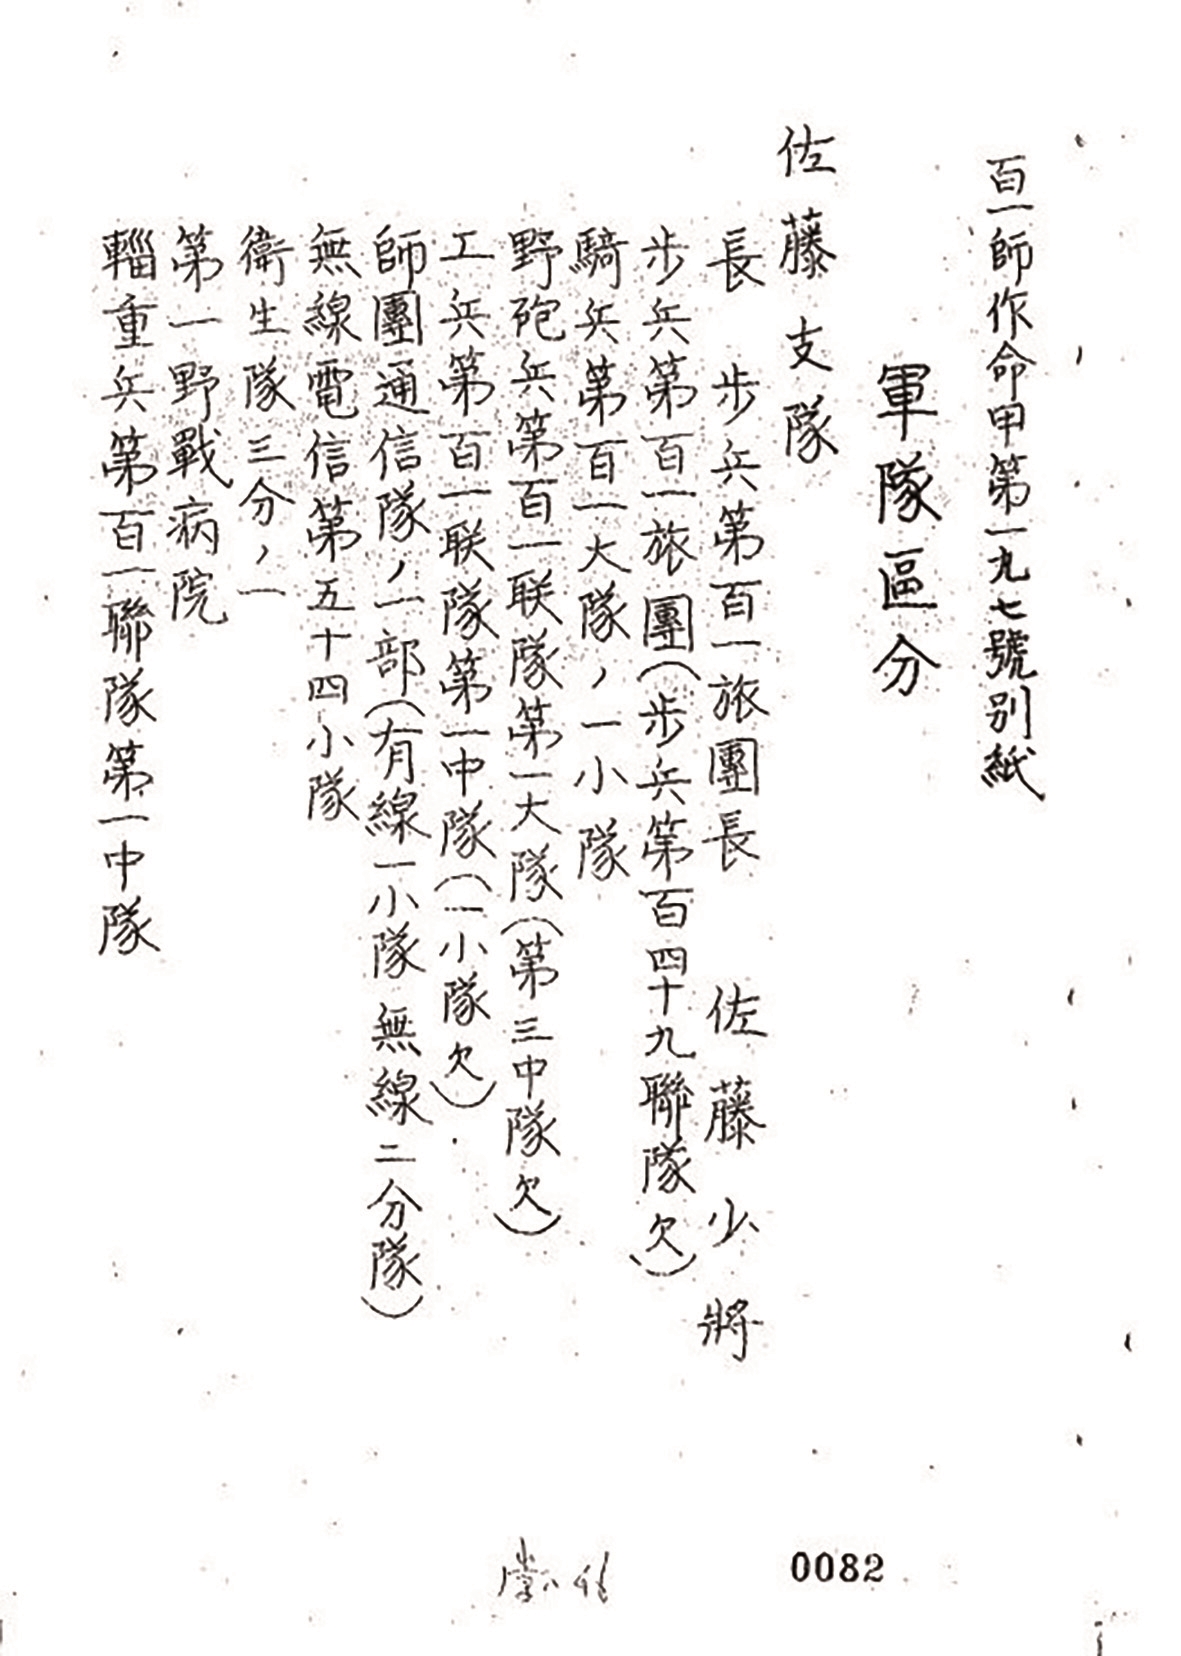 百一師作命甲第一九七號別紙
軍隊區分
佐藤支隊
長 步兵第百一旅團長 佐藤少將
步兵第百一旅團(步兵第百四十九聯隊欠)
騎兵第百一大隊ノ一小隊
野砲兵第百一联隊第一大隊(第三中隊欠)
工兵第百一联隊第一中隊(一小隊欠)
師團通信隊ノ一部(有線一小隊無線二分隊)
無線電信第五十四小隊
衛生隊三分ノ一
第一野戰病院
輜重兵第百一聯隊第一中隊
0082